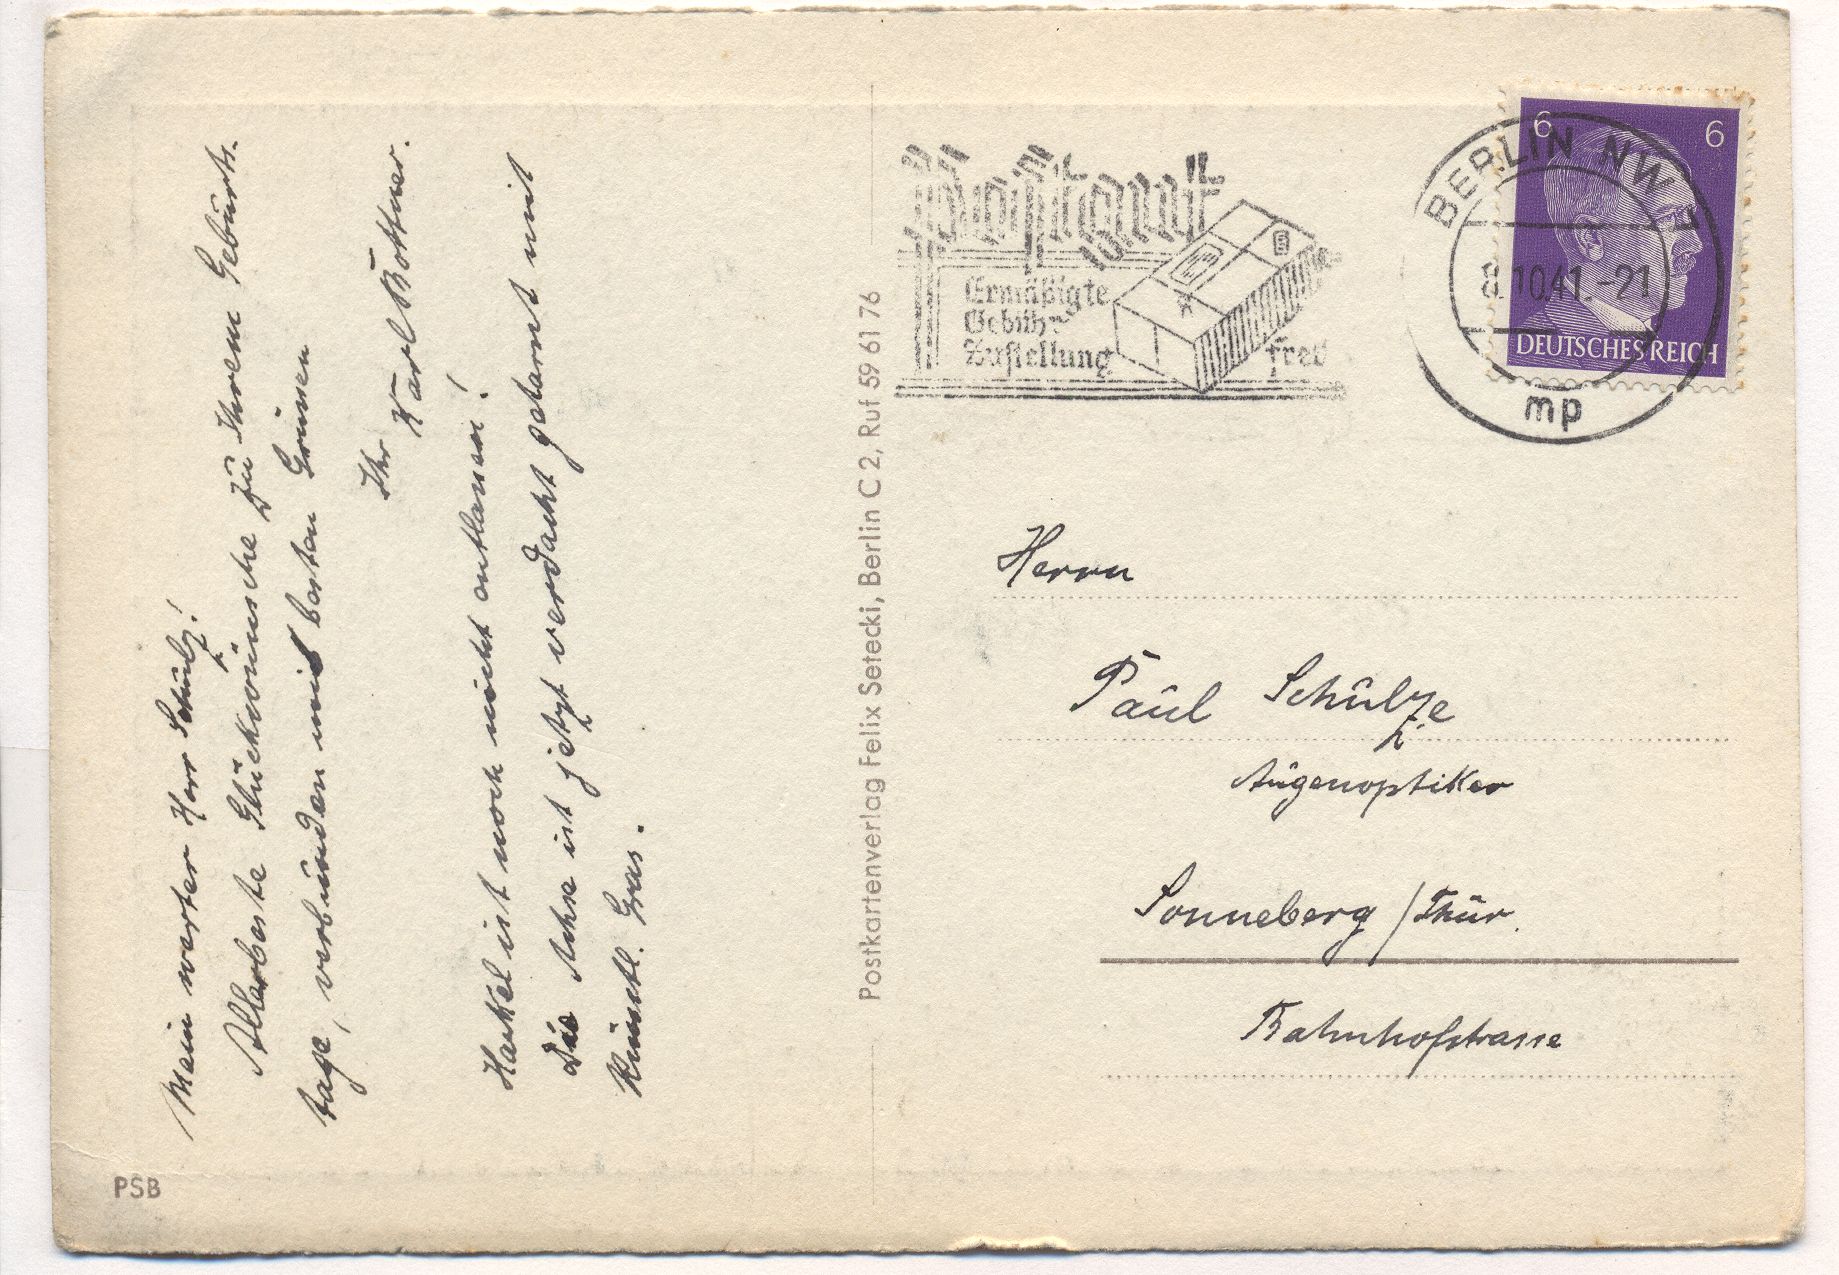 Mein werter Herr Schulz!
Allerbeste Glückwünsche zu Ihrem Geburts-
tage, verbunden mit besten Grüssen
Ihr
Karl Böttner.
Haskel ist noch nicht entlassen!
Die Achse ist jetzt verdacht getarnt mit
Künstl. Gras.
PSB
Postkartenverlag Felix Setecki, Berlin C 2, Ruf 59 61 76
Postgut
Ermäßigte
Gebühr
Zustellung frei
BERLIN NW
8.10.41.-21
mp
6 6
DEUTSCHES REICH
Herrn
Paul Schulze
Augenoptiker
Sonneberg/Thür.
Bahnhofstrasse